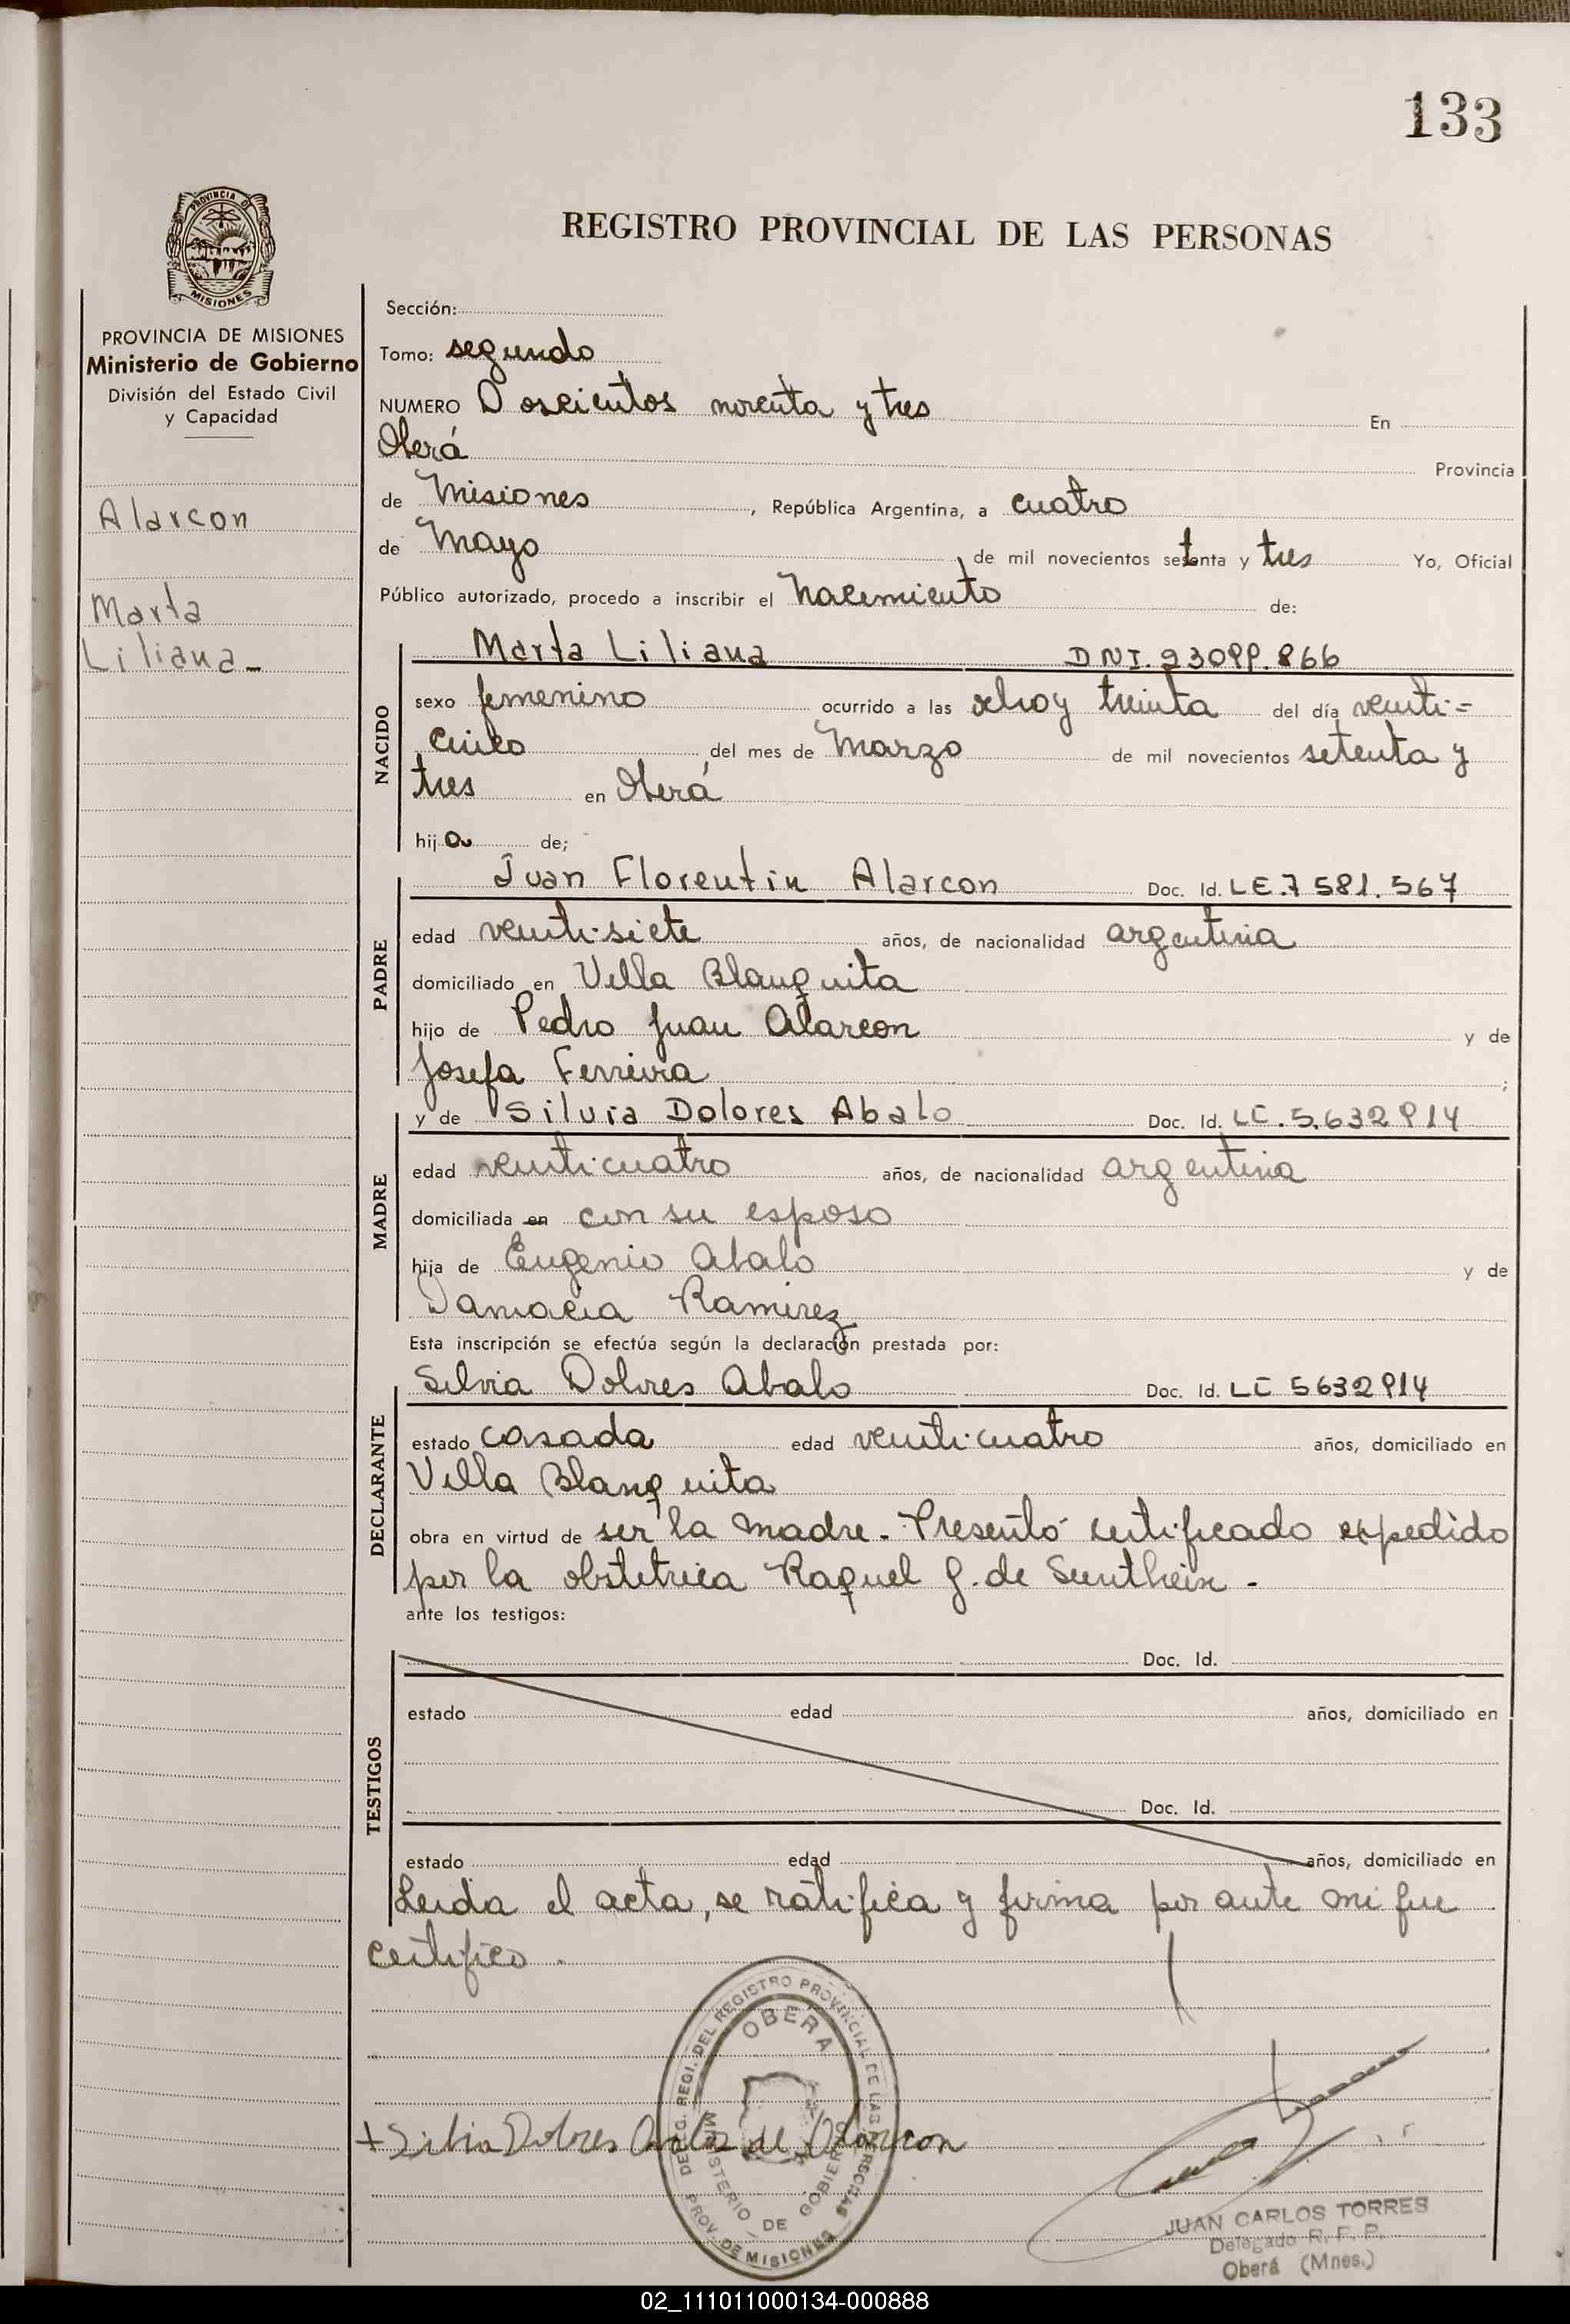 133
REGISTRO PROVINCIAL DE LAS PERSONAS
PROVINCIA DE
MISIONES
PROVINCIA DE MISIONES
Ministerio de Gobierno
División del Estado Civil
y Capacidad
Alarcon
Marta
Liliana-
Sección:
Tomo: segundo
NUMERO Doscientos noventa y tres En
Oberá Provincia
de Misiones, República Argentina, a cuatro
de Mayo de mil novecientos setenta y tres Yo, Oficial
Público autorizado, procedo a inscribir el Nacimiento de:
NACIDO
Marta Liliana DNI. 23099.866
sexo femenino ocurrido a las ocho y treinta del día veinti=
cinco del mes de Marzo de mil novecientos setenta y
tres en Oberá
hija de;
PADRE
Juan Florentin Alarcon Doc. Id. LE.7 581.567
edad veinti-siete años, de nacionalidad argentina
domiciliado en Villa Blanquita
hijo de Pedro Juan Alarcon y de
Josefa Ferreira;
MADRE
y de Silvia Dolores Abalo Doc. Id. LC.5.632914
edad veinticuatro años, de nacionalidad argentina
domiciliada en con su esposo
hija de Eugenio Abalo y de
Damacia Ramirez
Esta inscripción se efectúa según la declaración prestada por:
DECLARANTE
Silvia Dolores Abalo Doc. Id. LC 5632914
estado casada edad veinticuatro años, domiciliado en
Villa Blanquita
obra en virtud de ser la madre. Presentó certificado expedido
por la obstetrica Raquel G. de
ante los testigos:
TESTIGOS
Doc. Id.
estado edad años, domiciliado en
Doc. Id.
estado edad años, domiciliado en
Leida el acta, se ratifica y firma por ante mi que
certifico.
DELEG. REGI. DEL REGISTRO PROVINCIAL DE LAS PERSONAS
OBERA
MINISTERIO DE GOBIERNO
PROV. DE MISIONES
+ Silvia Dolores Abalo de Alarcon
JUAN CARLOS TORRES
Delegado R. P. P.
Oberá (Mnes.)
02_111011000134-000888